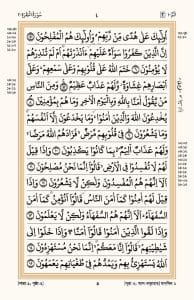 أُولَٰئِكَ عَلَىٰ هُدًى مِنْ رَبِّهِمْ ۖ وَأُولَٰئِكَ هُمُ الْمُفْلِحُونَ
إِنَّ الَّذِينَ كَفَرُوا سَوَاءٌ عَلَيْهِمْ أَأَنْذَرْتَهُمْ أَمْ لَمْ تُنْذِرْهُمْ
لَا يُؤْمِنُونَ خَتَمَ اللَّهُ عَلَىٰ قُلُوبِهِمْ وَعَلَىٰ سَمْعِهِمْ ۖ وَعَلَىٰ
أَبْصَارِهِمْ غِشَاوَةٌ ۖ وَلَهُمْ عَذَابٌ عَظِيمٌ وَمِنَ النَّاسِ
مَنْ يَقُولُ آمَنَّا بِاللَّهِ وَبِالْيَوْمِ الْآخِرِ وَمَا هُمْ بِمُؤْمِنِينَ
يُخَادِعُونَ اللَّهَ وَالَّذِينَ آمَنُوا وَمَا يَخْدَعُونَ إِلَّا أَنْفُسَهُمْ
وَمَا يَشْعُرُونَ فِي قُلُوبِهِمْ مَرَضٌ فَزَادَهُمُ اللَّهُ مَرَضًا
وَلَهُمْ عَذَابٌ أَلِيمٌ بِمَا كَانُوا يَكْذِبُونَ وَإِذَا قِيلَ
لَهُمْ لَا تُفْسِدُوا فِي الْأَرْضِ قَالُوا إِنَّمَا نَحْنُ مُصْلِحُونَ
أَلَا إِنَّهُمْ هُمُ الْمُفْسِدُونَ وَلَٰكِنْ لَا يَشْعُرُونَ وَإِذَا
قِيلَ لَهُمْ آمِنُوا كَمَا آمَنَ النَّاسُ قَالُوا أَنُؤْمِنُ كَمَا آمَنَ
السُّفَهَاءُ ۗ أَلَا إِنَّهُمْ هُمُ السُّفَهَاءُ وَلَٰكِنْ لَا يَعْلَمُونَ
وَإِذَا لَقُوا الَّذِينَ آمَنُوا قَالُوا آمَنَّا وَإِذَا خَلَوْا إِلَىٰ
شَيَاطِينِهِمْ قَالُوا إِنَّا مَعَكُمْ إِنَّمَا نَحْنُ مُسْتَهْزِئُونَ
اللَّهُ يَسْتَهْزِئُ بِهِمْ وَيَمُدُّهُمْ فِي طُغْيَانِهِمْ يَعْمَهُونَ